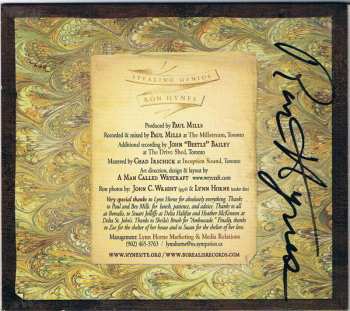 STEALING GENIUS
RON HYNES
Produced by PAUL MILLS
Recorded & mixed by PAUL MILLS at The Millstream, Toronto
Additional recording by JOHN "BEETLE" BAILEY
at The Drive Shed, Toronto
Mastered by CHAD IRSCHICK at Inception Sound, Toronto
Art direction, design & layout by
A MAN CALLED WRYCRAFT www.wrycraft.com
Ron photos by JOHN C. WRIGHT & LYNN HORNE
Very special thanks to Lynn Horne for absolutely everything. Thanks
to Paul and Bev Mills for lunch, patience, and advice. Thanks to all
at Borealis, to Stuart Jolliffe at Delta Halifax and Heather McKinnon at
Delta St. John's. Thanks to Sheila's Brush for "Ambassade." Finally, thanks
to Zoe for the shelter of her house and to Susan for the shelter of her love.
Management: Lynn Horne Marketing & Media Relations
(902) 465-3763 / lynnhorne@ns.sympatico.ca
WWW.HYNESITE.ORG / WWW.BOREALISRECORDS.COM
Ron Hynes